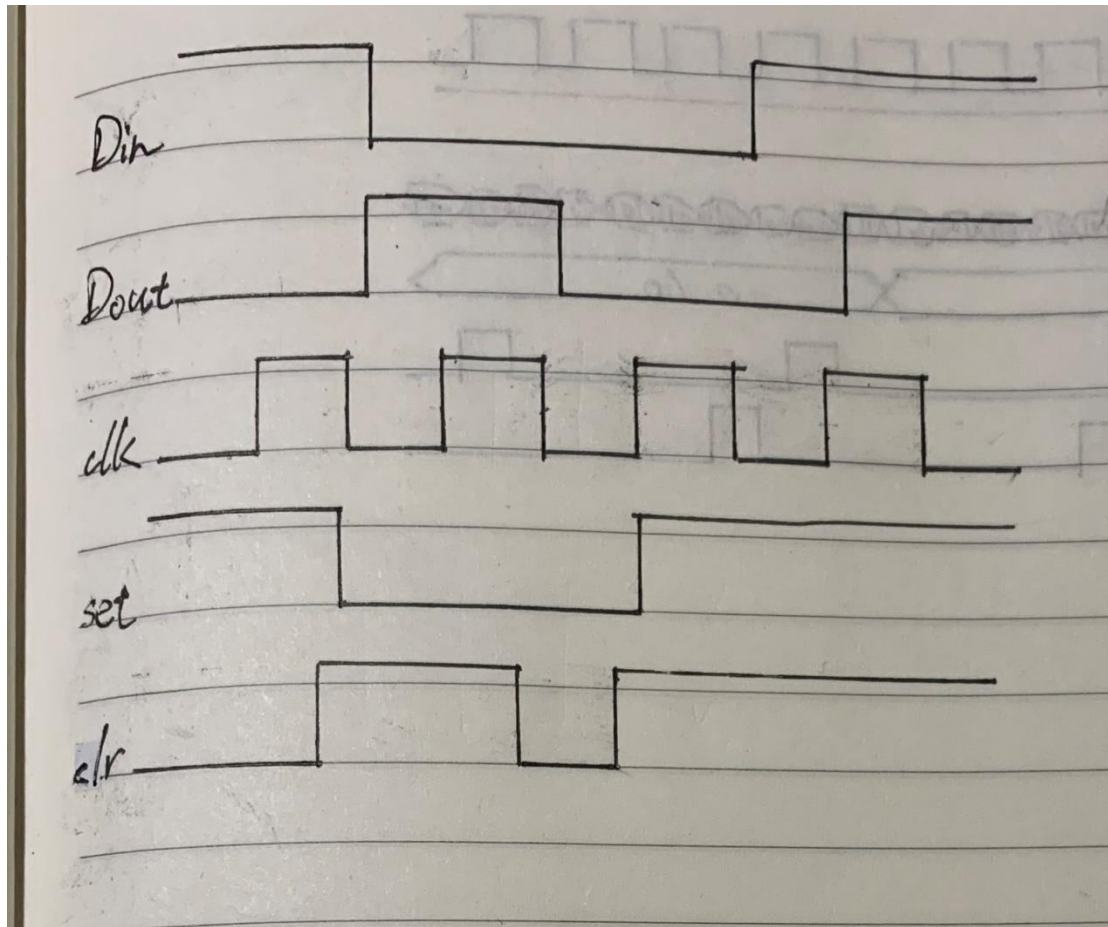 Din
Dout
clk
set
clr